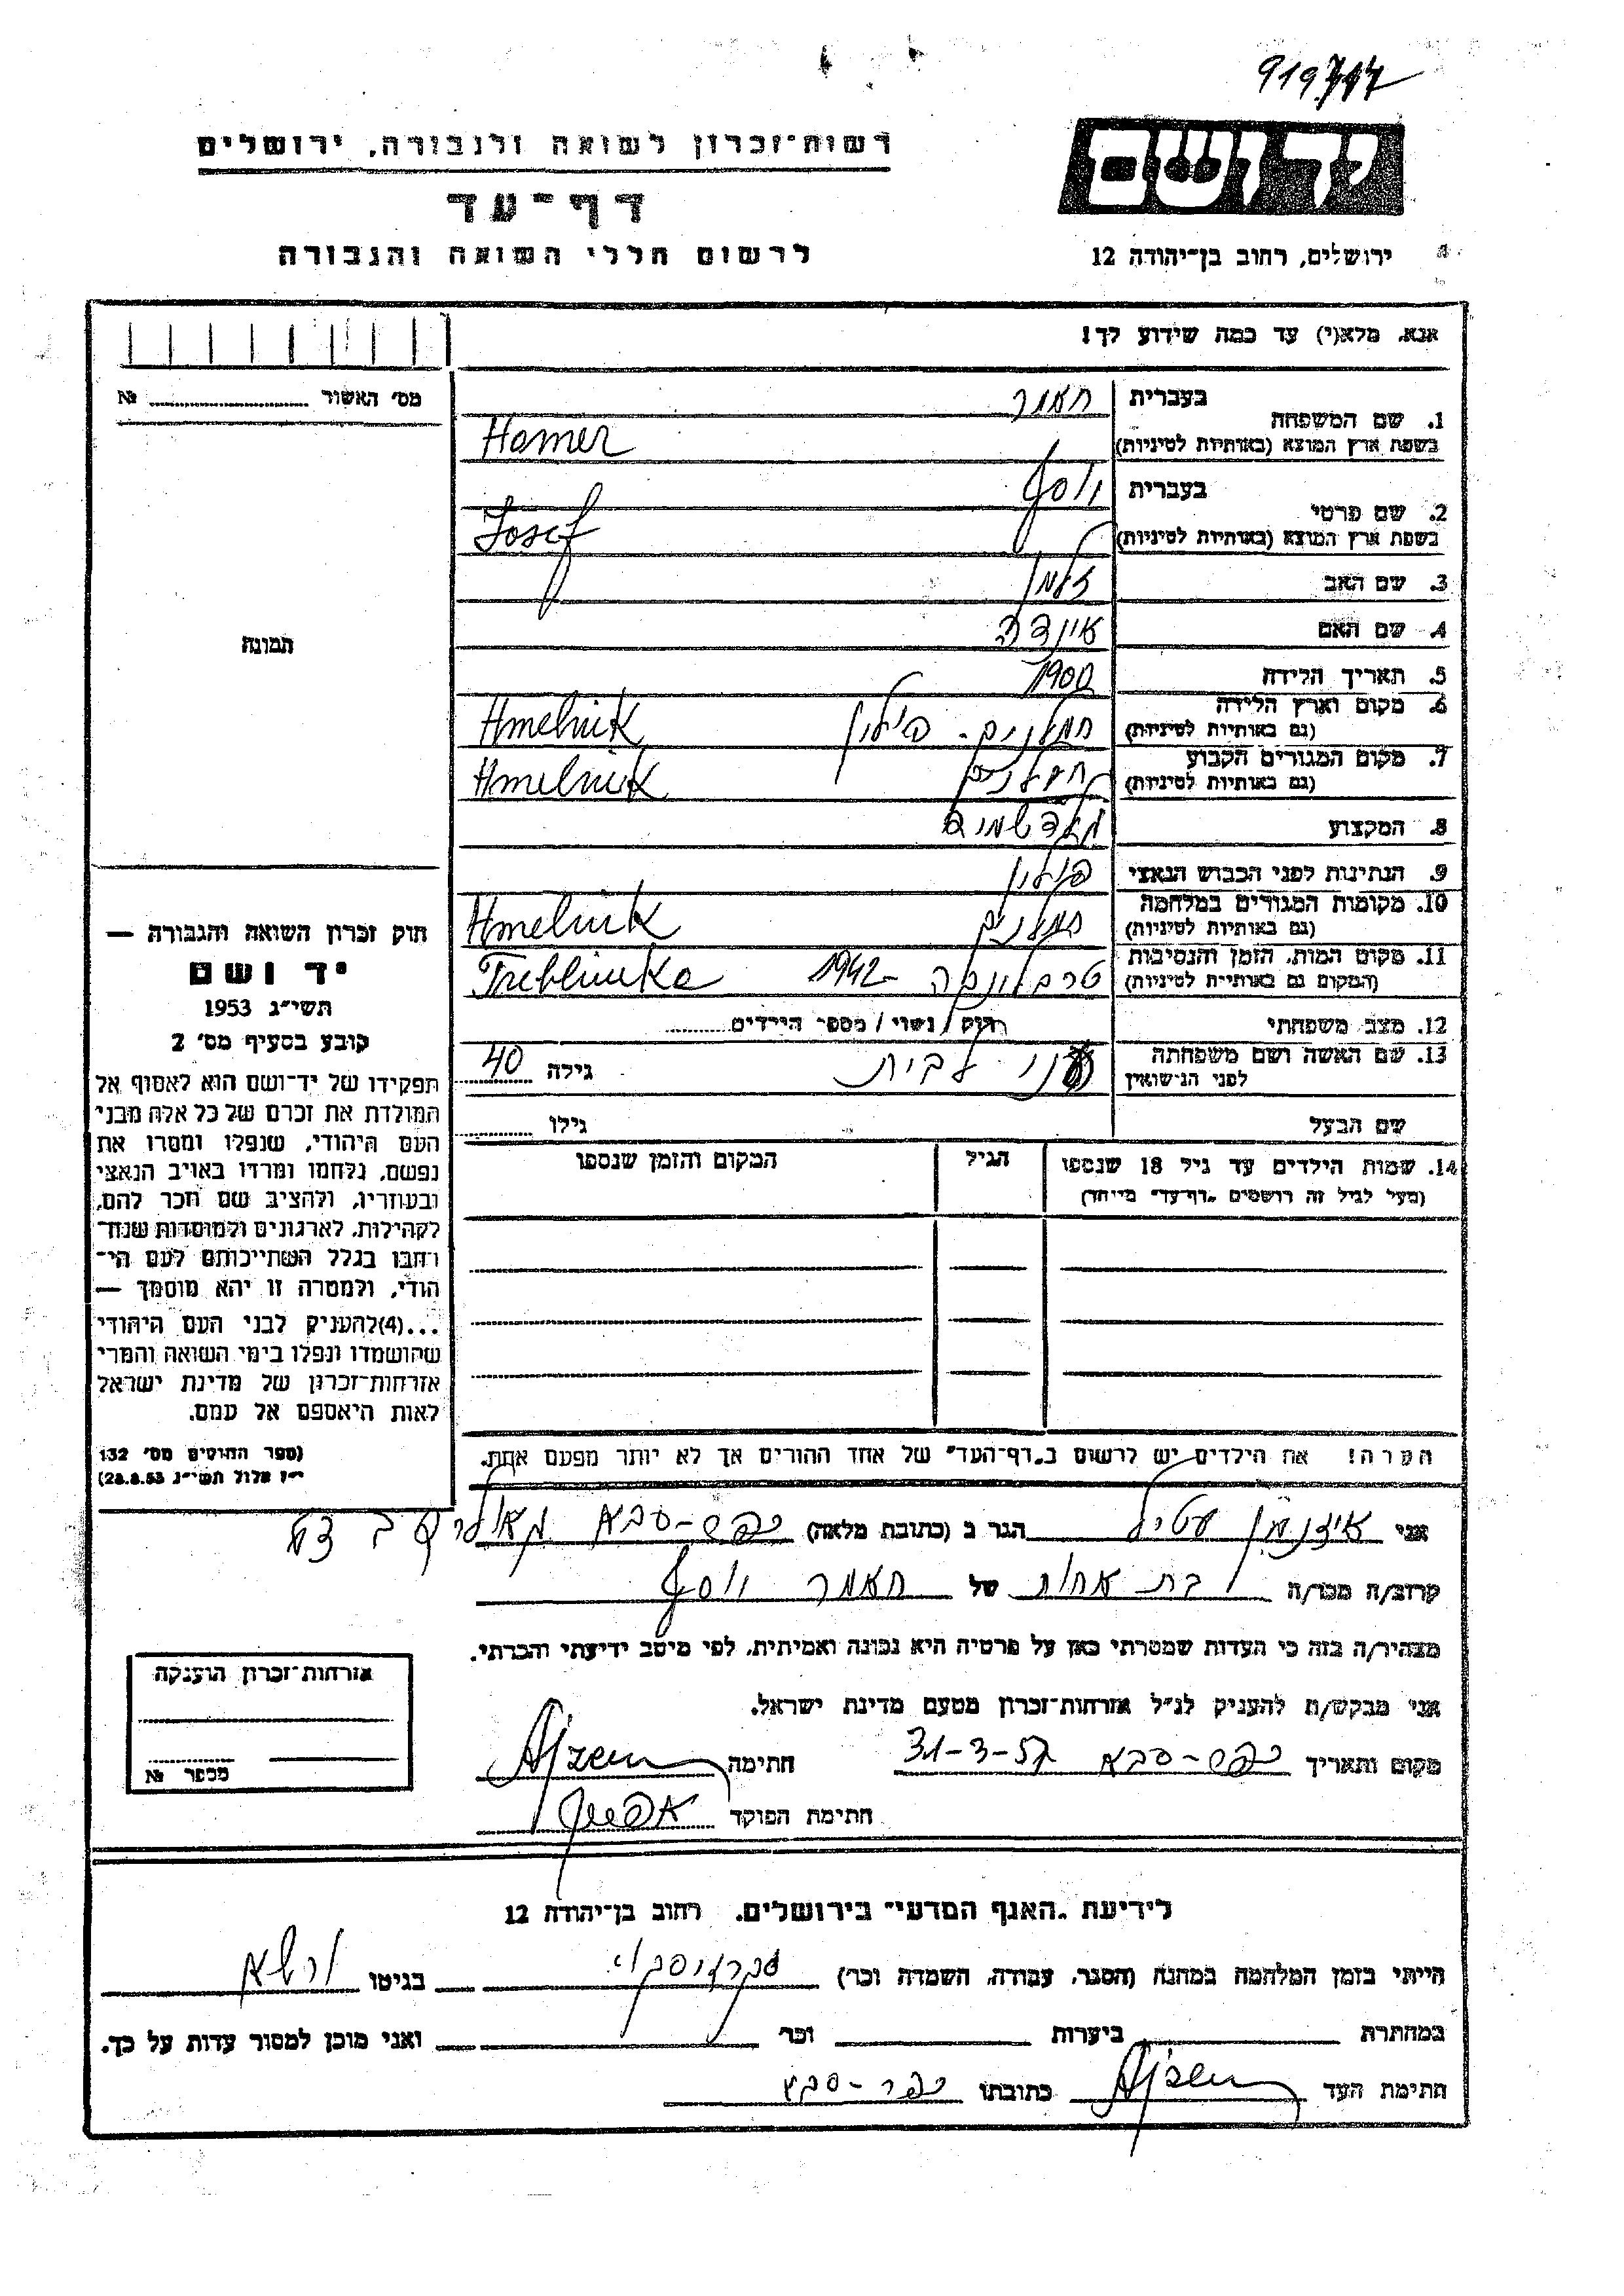 919
רשות־זכרון לשואה ולגבורה, ירושלים
דף־עד
לרשום חללי השואה והגבורה
יד ושם
ירושלים, רחוב בן־יהודה 12
אנא, מלא(י) עד כמה שידוע לך!
מס׳ האשור № 
1. שם המשפחה
בעברית חאמר
בשפת ארץ המוצא (באותיות לטיניות) Hamer
2. שם פרטי
בעברית יוסף
בשפת ארץ המוצא (באותיות לטיניות) Josef
3. שם האב זלמן
4. שם האם
5. תאריך הלידה 1900
6. מקום וארץ הלידה
(גם באותיות לטיניות) חמלניק - פולין Hmelnik
7. מקום המגורים הקבוע
(גם באותיות לטיניות) חמלניק Hmelnik
8. המקצוע
9. הנתינות לפני הכבוש הנאצי פולין
10. מקומות המגורים במלחמה
(גם באותיות לטיניות) חמלניק Hmelnik
11. מקום המות, הזמן והנסיבות
(המקום גם באותיות לטיניות) טרבלינקה -1942 Treblinka
12. מצב משפחתי רווק / נשוי / מספר הילדים
13. שם האשה ושם משפחתה
לפני הנישואין לבית גילה 40
שם הבעל גילו
14. שמות הילדים עד גיל 18 שנספו
(מעל לגיל זה רושמים „דף־עד״ מיוחד)
הגיל
המקום והזמן שנספו
הערה! את הילדים יש לרשום ב„דף־העד״ של אחד ההורים אך לא יותר מפעם אחת.
תמונה
חוק זכרון השואה והגבורה —
יד ושם
תשי״ג 1953
קובע בסעיף מס׳ 2
תפקידו של יד־ושם הוא לאסוף אל
המולדת את זכרם של כל אלה מבני
העם היהודי, שנפלו ומסרו את
נפשם, נלחמו ומרדו באויב הנאצי
ובעוזריו, ולהציב שם וזכר להם,
לקהילות, לארגונים ולמוסדות שנח־
רבו בגלל השתייכותם לעם הי־
הודי, ולמטרה זו יהא מוסמך —
...(4)להעניק לבני העם היהודי
שהושמדו ונפלו בימי השואה והמרי
אזרחות־זכרון של מדינת ישראל
לאות היאספם אל עמם.
(ספר החוקים מס׳ 132
י״ז אלול תשי״ג 28.8.53)
אני איזנמן הגר ב (כתובת מלאה) כפר-סבא
קרוב/ה מכר/ה בת אחות של חאמר יוסף
מצהיר/ה בזה כי העדות שמסרתי כאן על פרטיה היא נכונה ואמיתית, לפי מיטב ידיעתי והכרתי.
אני מבקש/ת להעניק לנ״ל אזרחות־זכרון מטעם מדינת ישראל.
מקום ותאריך כפר-סבא 31-3-57 חתימה Ajzen
חתימת הפוקד
אזרחות־זכרון הוענקה
מספר №
לידיעת „האגף המדעי״ בירושלים, רחוב בן־יהודה 12
הייתי בזמן המלחמה במחנה (הסגר, עבודה, השמדה וכו׳) בגיטו ורשא
במחתרת ביערות וכו׳ ואני מוכן למסור עדות על כך.
חתימת העד Ajzen כתובתו כפר-סבא